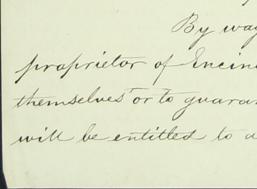 By way
proprietor of Encin
themselves or to guaran
will be entitled to a